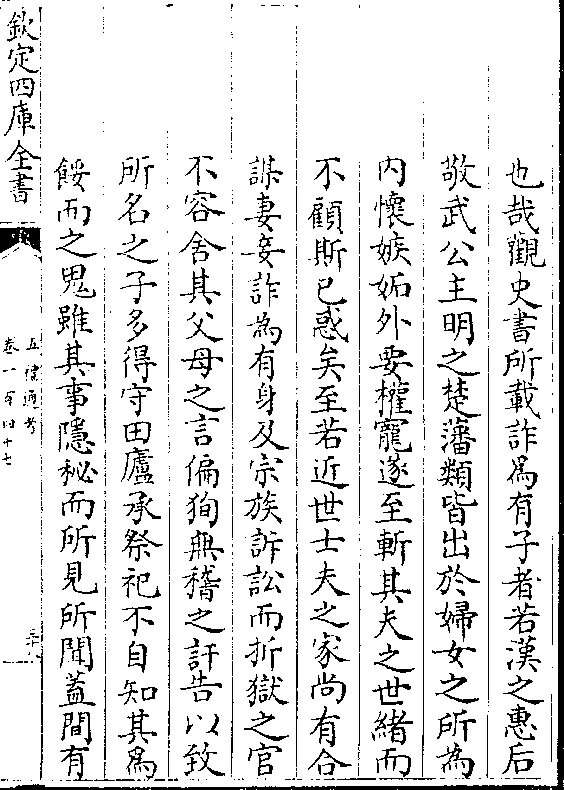 也哉觀史書所載詐為有子者若漢之惠后
敬武公主明之楚藩類皆出於婦女之所為
内懷嫉妬外要權寵遂至斬其夫之世緒而
不顧斯已惑矣至若近世士夫之家尚有合
謀妻妾詐為有身及宗族訴訟而折獄之官
不容舍其父母之言偏狥無稽之訐告以致
所名之子多得守田廬承祭祀不自知其為
餒而之鬼雖其事隱秘而所見所聞蓋間有
欽定四庫全書
五禮通考
卷一百四十七